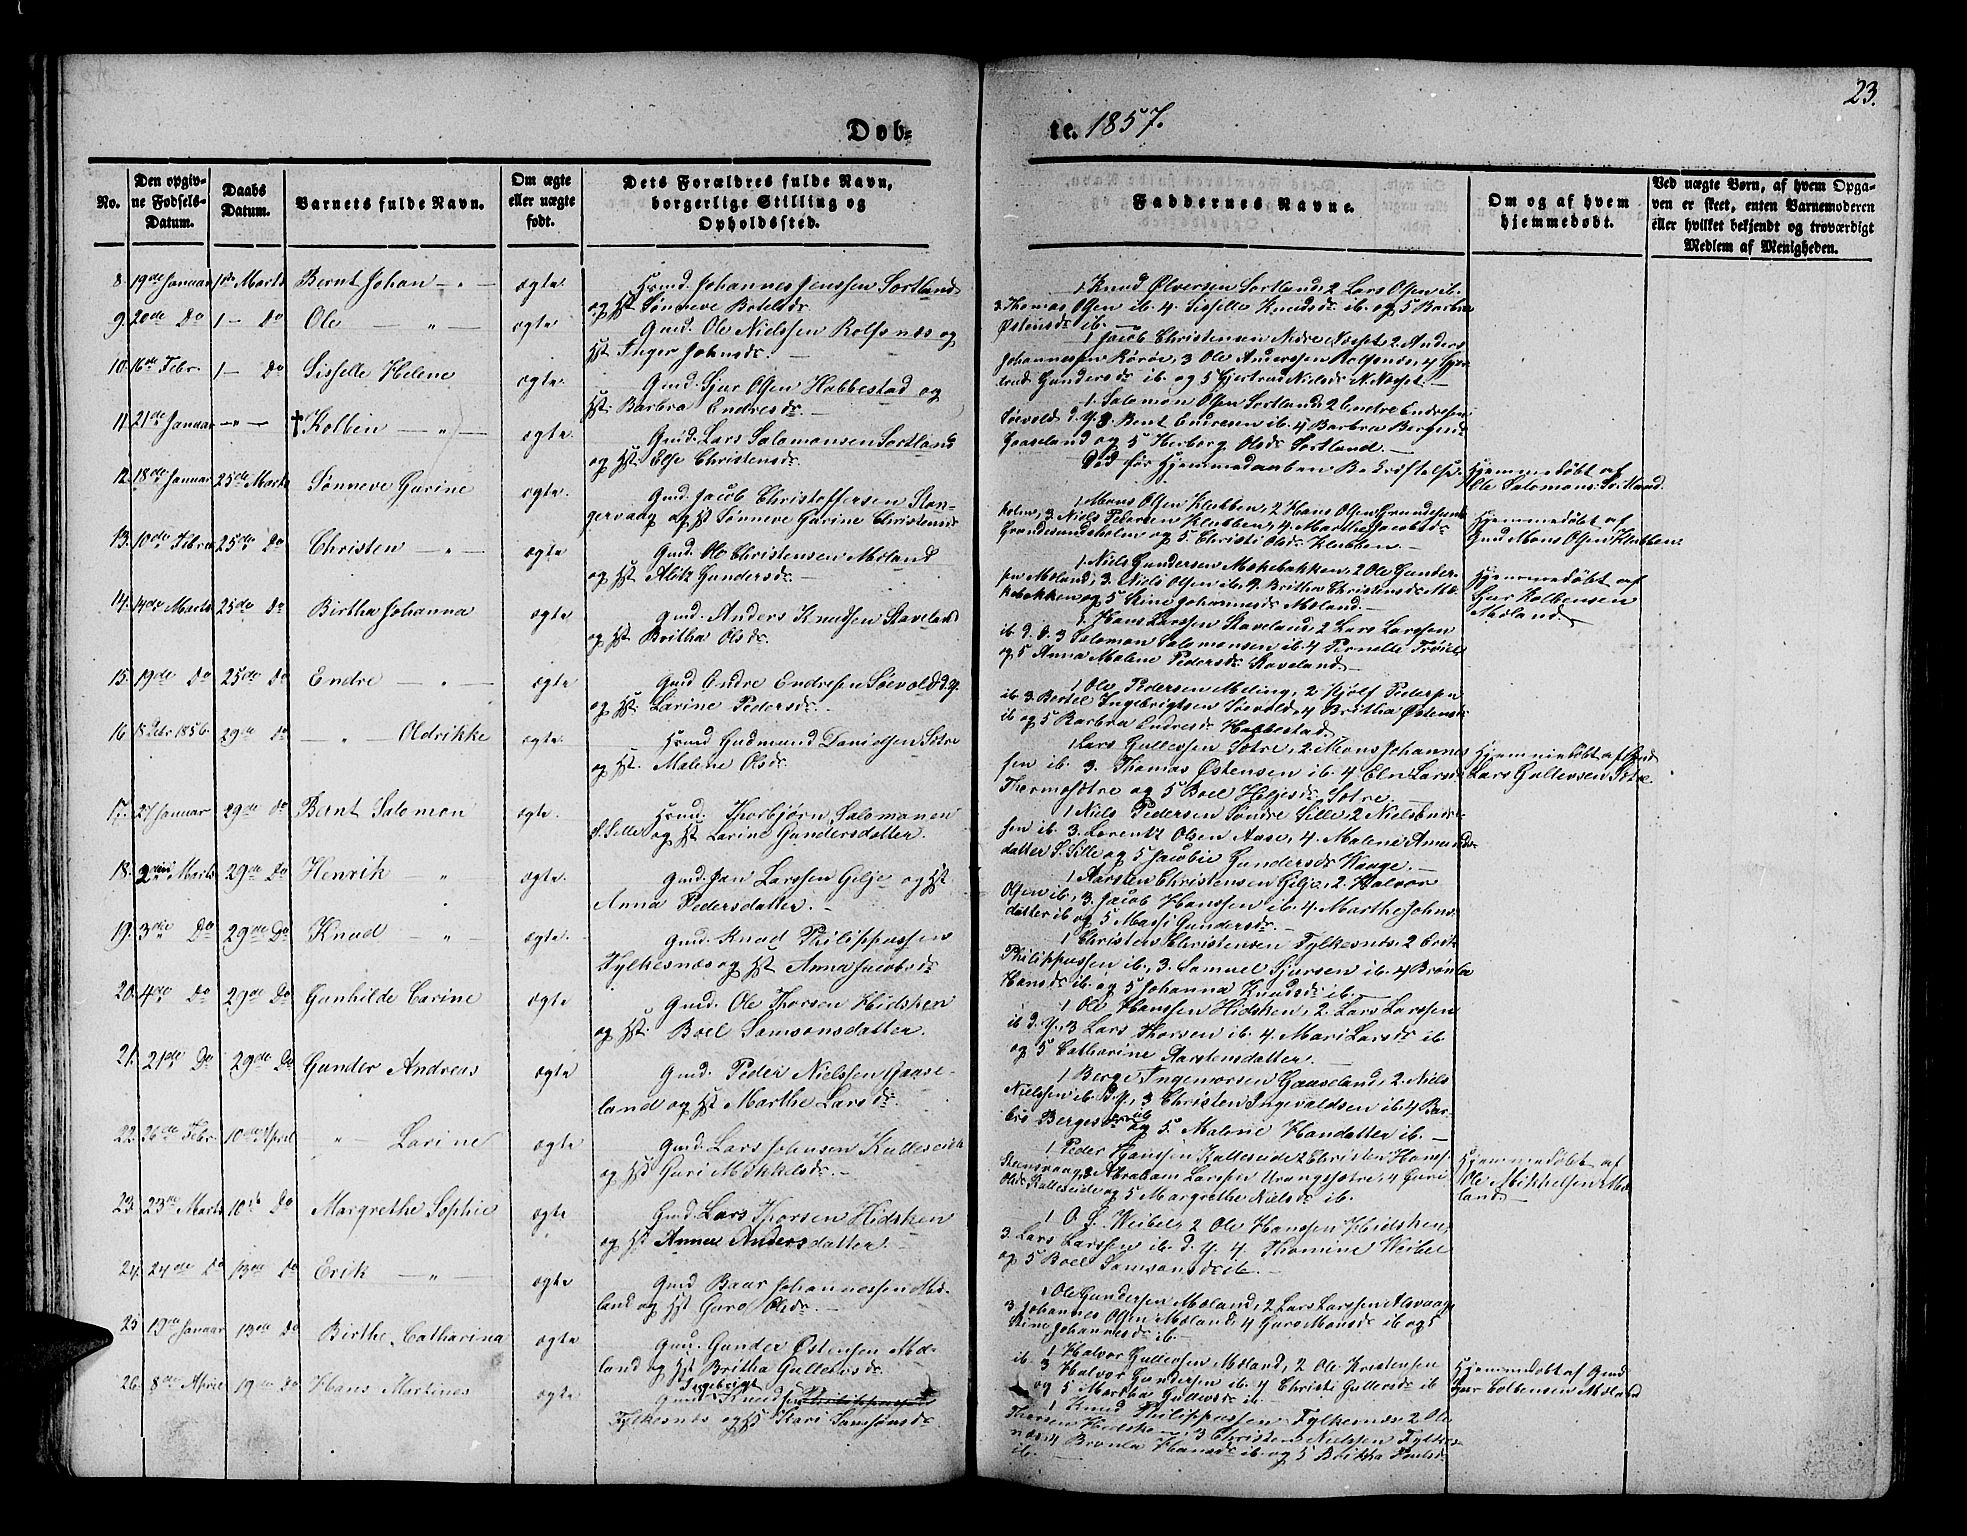 23.
Døb-
te. 1857.
No.
Den opgiv-
ne Fødsels-
Datum.
Daabs
Datum.
Barnets fulde Navn.
Om ægte
eller uægte
født.
Dets Forældres fulde Navn,
borgerlige Stilling og
Opholdssted.
Faddernes Navne.
Om og af hvem
hjemmedøbt.
Ved uægte Børn, af hvem Opga-
ven er skeet, enten Barnemoderen
eller hvilket bekjendt og troværdigt
Medlem af Menigheden.
8. 19de Januar 1ste Marts Bernt Johan — " — ægte
Huusmd. Johannes Jenssen Sortland
og Hst. Sønneve Botelsdr.
1 Knud Ølversen Sortland, 2 Lars Olsen ib.
3 Thomas Olsen ib. 4. Sisselle Knudsdr ib. og 5 Barbra
Østensdr ib. —
9. 20de Do 1— Do Ole — " — ægte
Gmd. Ole Nielssen Rolfsnæs og
Hst Inger Johnsdr. —
1 Jacob Christensen Nedre Næset, 2 Anders
Johannessen Rørøe, 3 Ole Anderssen Rolfsnæs, 4
Gundersdr ib. og 5 Gjertrud Nielsdr N. Næset. —
10. 16de Febr. 1— Do Sisselle Helene ægte.
Gmd. Sjur Olsen Habbestad og
Hst. Barbra Endresdr. —
1. Salomon Olsen Sortland, 2 Endre Endresen
Søevold d. Y. 3 Bent Endresen ib. 4 Barbra
Gaaseland og 5 Herborg Olsdr Sortland. —
11. 21de Januar — " — † Kolben — " — ægte.
Gmd. Lars Salamonsen Sortland
og Hst. Else Christensdr.
Død før Hjemmedaabens Bekræftelse.
Hjemmedøbt af
Ole Salomons.
12. 18de Januar 25de Marts Sønneve Gurine ægte.
Gmd. Jacob Christoffersen Stan-
gervaag og Hst Sønneve Gurine Christensdr
1 Mons Olsen Klubben, 2 Hans Olsen
holm, 3 Niels Pedersen Klubben, 4. Marthe Jacobsdr
og 5 Christi Olsdr Klubben. —
Hjemmedøbt af
Gmd Mons Olsen Klubben.
13. 10de Febr. 25de Do Christen — " — ægte
Gmd. Ole Christensen Mæland
og Hst Alitz Gundersdr. —
1 Niels Gundersen Møkebakken, 2 Ole Gunder-
sen Mæland, 3. Niels Olsen ib. 4 Britha Christensdr Mø-
kebakken og 5 Stine Johannesdr Mæland. —
Hjemmedøbt af
Sjur Kolbensen
Mæland.
14. 14de Marts 25de Do Birtha Johanna ægte
Gmd. Anders Knudsen Staveland
og Hst. Britha Olsdr.
1. Hans Larssen Staveland, 2 Lars Larssen
ib. d. Y. 3 Salomon Salomonsen ib. 4 Pernelle
og 5 Anna Malene Pedersdr Staveland. —
15. 19de Do 25de Do Endre — " — ægte
Gmd Endre Endresen Søevold d. Y.
og Hst. Larine Pedersdr. —
1 Ole Pedersen Meling, 2 Pedersen
ib. 3 Bertel Ingebrigtsen Søevold, 4 Britha Østensdr
ib og 5 Barbra Endresdr Habbestad.
16 1856. 29de Do — " — Oldrikke ægte.
Huusmd Gudmund Danielsen Totre
og Hst. Malene Olsdr.
1 Lars Gullessen Totre, 2 Mons Johannes-
sen ib. 3. Thomas Østensen ib. 4 Elen Larsdr
og 5 Boel Helgesdr Totre. —
Hjemmedøbt af Gmd
Lars Gullessen Totre.
17. 27 Januar 29de Do Bernt Salomon ægte.
Huusmd. Thorbjørn Salomonsen
S. Sille og Hst. Larine Gundersdatter.
1 Niels Pedersen Søndre Sille, 2 Niels
sen ib. 3. Lorentz Olsen Aase, 4. Malene
datter S. Sille og 5 Jacobie Gundersdr Waage. —
18. 2den Marts 29de Do Henrik — " ægte.
Gmd. Jan Larssen Gilje og Hst
Anna Pedersdatter. —
1 Aarsten Christensen Gilje, 2. Halvor
Olsen ib., 3. Jacob Hanssen ib. 4. Marthe Johns-
datter ib og 5 Massi Gundersdr. —
19. 3die Do 29de Do Knud — " — ægte.
Gmd. Knud Philippussen
Fylkesnæs og Hst Anna Jacobsdr
1 Christen Christensen Fylkesnæs, 2 Erik
Philippussen ib., 3. Samuel Sjursen ib. 4 Brønla
Hansdr ib. og 5 Johanna Knudsdr ib. —
20. 4de Do 29de Do Gunhilde Carine ægte
Gmd. Ole Thorsen Hidsken
og Hst. Boel Samsonsdatter.
1 Ole Hanssen Hidsken, 2. Lars Larssen
ib d. Y., 3 Lars Thorsen ib. 4. Mari Larsdr ib.
og 5 Catharine Aarstensdatter. —
21. 21de Do 29de Do Gunder Andreas ægte
Gmd. Peder Nielssen Gaase-
land og Hst Marthe Larsdr.
1 Berge Ingemorsen Gaaseland, 2. Niels
Nielssen ib. d. Y., 3 Christen Ingevaldsen ib. 4 Bar-
bro Bergesdr ib og 5. Malene Handatter ib. —
22. 26de Febr. 10de April — " — Larine ægte
Gmd: Lars Johnsen Kallesvik
og Hst Guri Mikkelsdr. —
1. Peder Hanssen Kalleseide 2 Christen Hans-
3 Abraham Larssen 4 Guri
Olsdr Kalleseide og 5 Margrethe Nielsdr ib.
Hjemmedøbt af
Ole Mikkelsen Mæ-
land —
23. 23de Marts 10de Do Margrethe Sophie ægte
Gmd. Lars Thorsen Hidsken
og Hst Anna Andersdatter.
1 O. S. Weibel, 2 Ole Hanssen Hidsken,
3. Lars Larssen ib. d. Y. 4. Thomine Weibel
og 5 Boel Samsonsdr ib. —
24. 24de Do 13de Do Erik — " — ægte
Gmd Baar Johannessen Mæ-
land og Hst Guro Olsdr. —
1 Ole Gundersen Mæland, 2 Lars Larssen Alsvaag
3 Johannes Olsen Mæland, 4 Guro Monsdr ib og 5
Stine Johannesdr ib. —
25 19de Januar 13de Do Birthe Catharina ægte
Gmd. Gunder Østensen Mæ-
land og Hst Britha Gullensdr
1 Halvor Gullessen Mæland, 2 Ole Kristensen
ib. 3 Halvor Gundersen ib. 4 Christi Gullesdr ib
og 5 Martha Gullesdr ib.
Hjemmedøbt af Gmd
Sjur Colbensen Mæland
26. 8de April 19de Do Hans Martines ægte
Ingebrigt
Gmd Knudsen Philippussen
Fylkesnæs og Hst Kari Samsonsdr.
1 Knud Philippussen Fylkesnæs 2 Ole
Thorsen Hidsken, 3 Christen Nielssen Fylkes-
næs, 4 Brønla Hansdr ib. og 5 Britha
ib. —